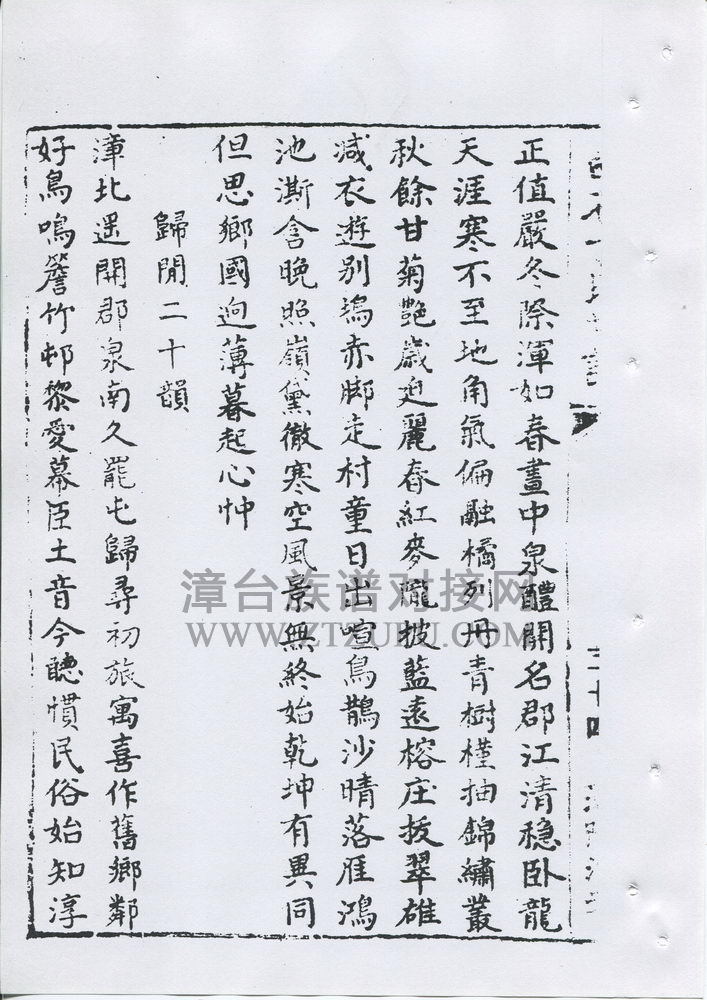 正值嚴冬際渾如春畫中泉醴開名郡江清穩臥龍
天涯寒不至地角氣偏融橘列丹青樹槿抽錦繡叢
秋餘甘菊艷歲迎麗春紅麥隴披藍遠榕庄拔翠雄
減衣遊別塢赤脚走村童日出喧鳥鵲沙晴落雁鴻
池澌含晚照嶺黛徹寒空風景無終始乾坤有異同
但思鄉國迥薄暮起心忡
歸閒二十韻
漳北遥開郡泉南久罷屯歸尋初旅寓喜作舊鄉鄰
好鳥鳴簷竹邨黎愛幕臣土音今聽慣民俗始知淳
三十四
漳台族谱对接网
WWW.ZTZUPU.COM